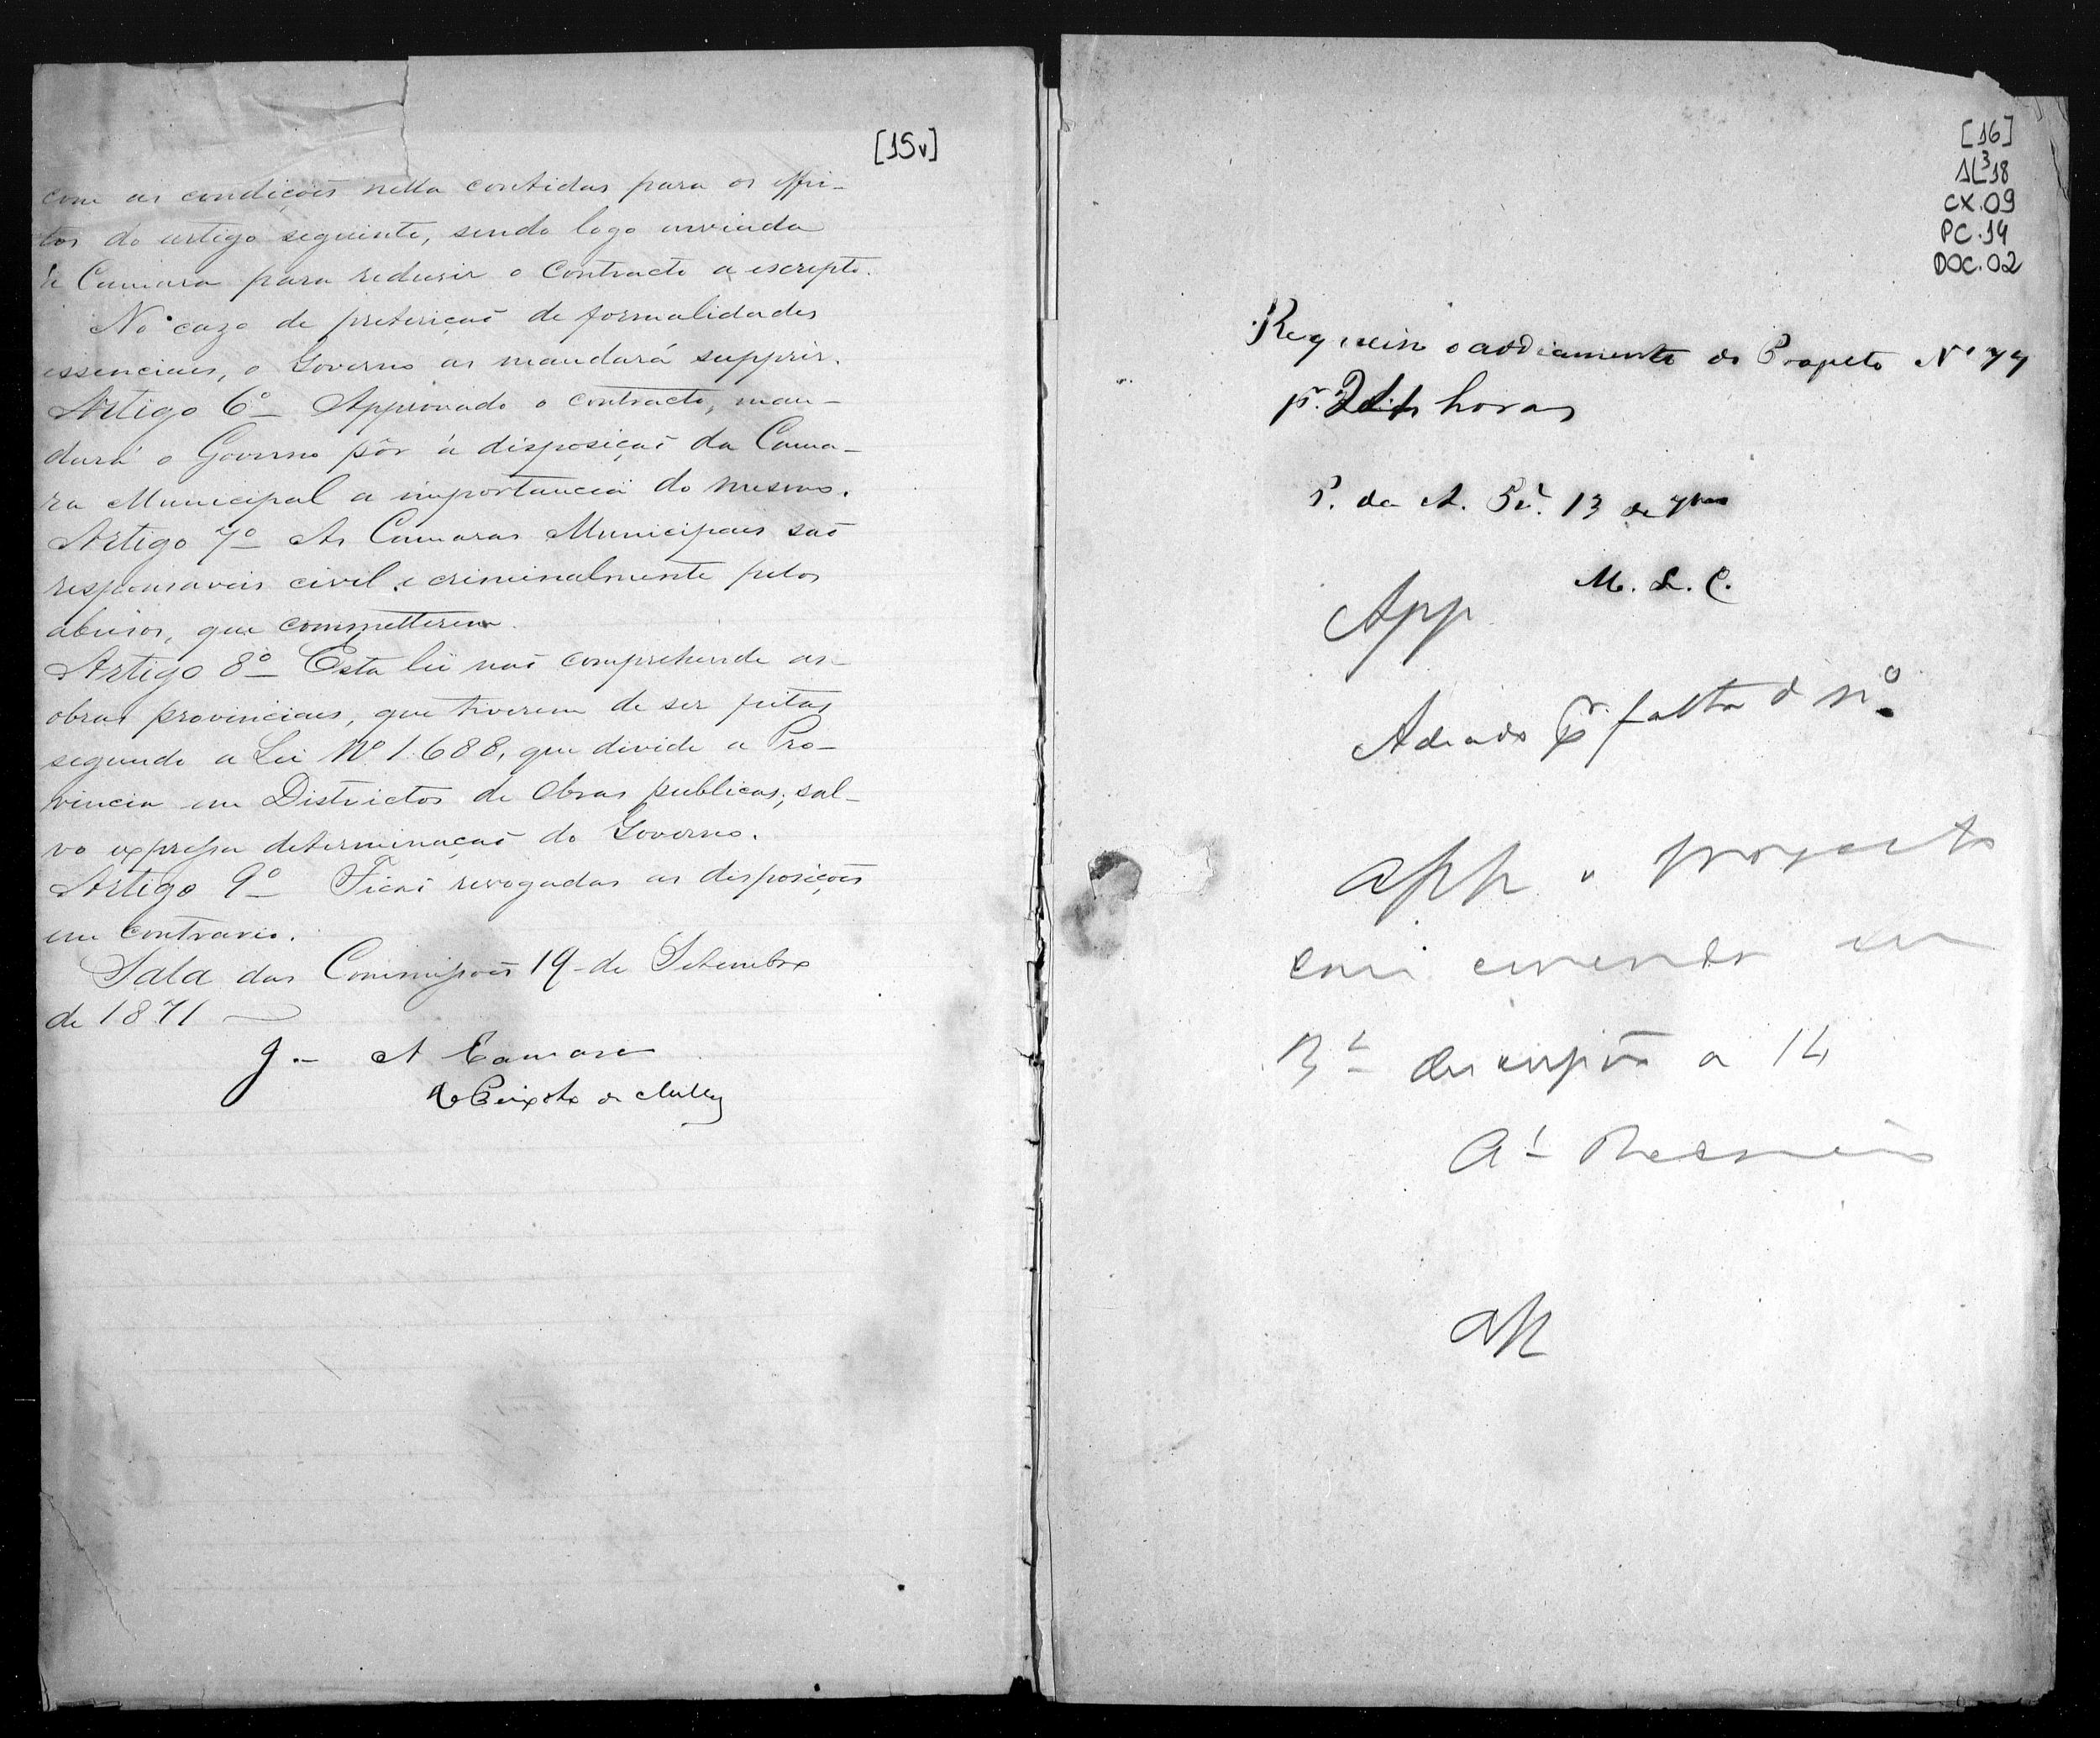 [15v]
com as condições nella contidas para os effei-
tos do artigo seguinte, sendo logo inviada
á Camara para redusir o Contracto a escripto.
No cazo de preteriçaõ de formalidades
essenciaes, o Governo as mandará supprir.
Artigo 6º Approvado o contracto, man-
dará o Governo pôr á disposiçaõ da Cama-
ra Municipal a importancia do mesmo.
Artigo 7º As Camaras Municipaes saõ
responsaveis civil e criminalmente pelos
abusos, que commetterem.
Artigo 8º Esta lei naõ comprehende as
obras provinciaes, que tiverem de ser feitas
segundo a Lei Nº 1.688, que divide a Pro-
vincia em Districtos de Obras publicas, sal-
vo expressa determinaçaõ do Governo.
Artigo 9º Ficaõ revogadas as disposições
em contrario.
Sala das Commissões 19 de Setembro
de 1871
J. A Camara
Peixoto de Mello
[16]
AL³18
CX.09
PC.14
DOC.02
Requeiro o addiamento do Projeto Nº 77
pr. horas
P. da A. 13 de 7bro
M. L. C.
App
Adiado pr falta de nº
App o projecto
com emenda em
3ª discussão a 14
A'
app